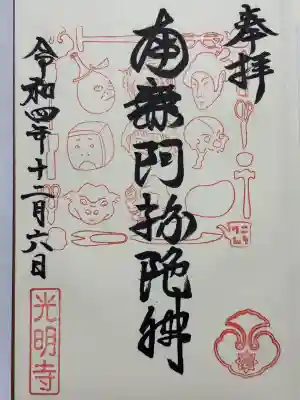 奉拝
南無阿弥陀佛
令和四年十二月六日
光明寺